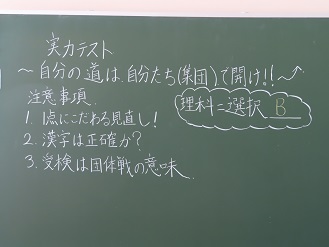 実力テスト
～自分の道は、自分たち(集団)で開け!!～
注意事項
1. 1点にこだわる見直し!
2. 漢字は正確か?
3. 受検は団体戦の意味
理科=選択 B